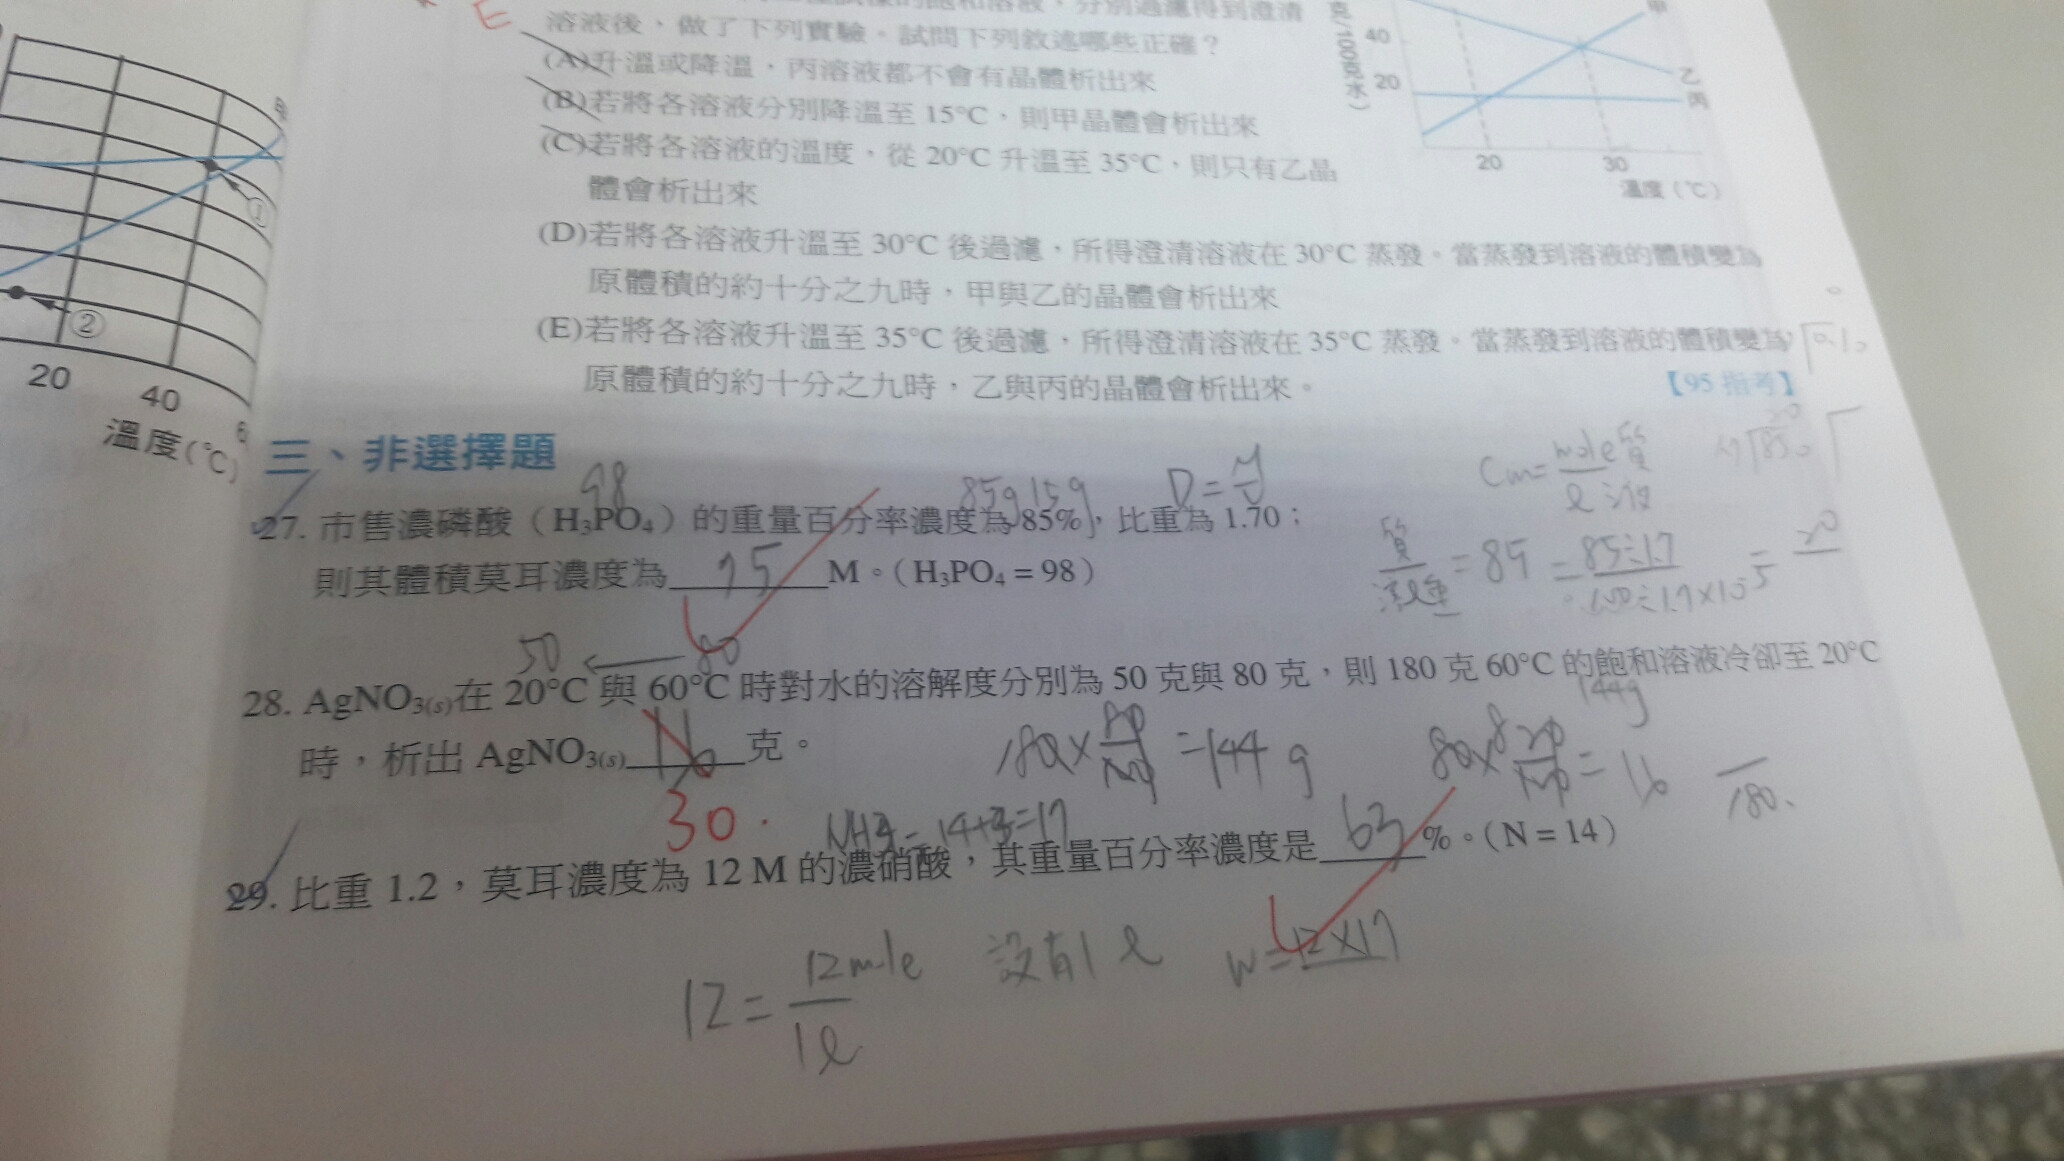 E
溶液後，做了下列實驗。試問下列敘述哪些正確？
(A)升溫或降溫，丙溶液都不會有晶體析出來
(B)若將各溶液分別降溫至 15°C，則甲晶體會析出來
(C)若將各溶液的溫度，從 20°C 升溫至 35°C，則只有乙晶
體會析出來
(D)若將各溶液升溫至 30°C 後過濾，所得澄清溶液在 30°C 蒸發。當蒸發到溶液的體積變為
原體積的約十分之九時，甲與乙的晶體會析出來
(E)若將各溶液升溫至 35°C 後過濾，所得澄清溶液在 35°C 蒸發。當蒸發到溶液的體積變為
原體積的約十分之九時，乙與丙的晶體會析出來。
【95 指考】
克/100克水）
40
20
甲
乙
丙
20 30
溫度（℃）
①
②
20 40 6
溫度(℃)
三、非選擇題
98
85g 15g
D=
27. 市售濃磷酸（H₃PO₄）的重量百分率濃度為 85%，比重為 1.70；
則其體積莫耳濃度為 15 M。（H₃PO₄ = 98）
Cm= mole質
ℓ 液
質 = 85 = 85÷1.7
50 ← 80
28. AgNO₃₍ₛ₎在 20°C 與 60°C 時對水的溶解度分別為 50 克與 80 克，則 180 克 60°C 的飽和溶液冷卻至 20°C
時，析出 AgNO₃₍ₛ₎ 16 克。
30.
=144 g
144g
= 16
180.
=17
29. 比重 1.2，莫耳濃度為 12 M 的濃硝酸，其重量百分率濃度是 63 %。（N = 14）
12 = 12mole
1ℓ
設有1 ℓ
W = 12×17